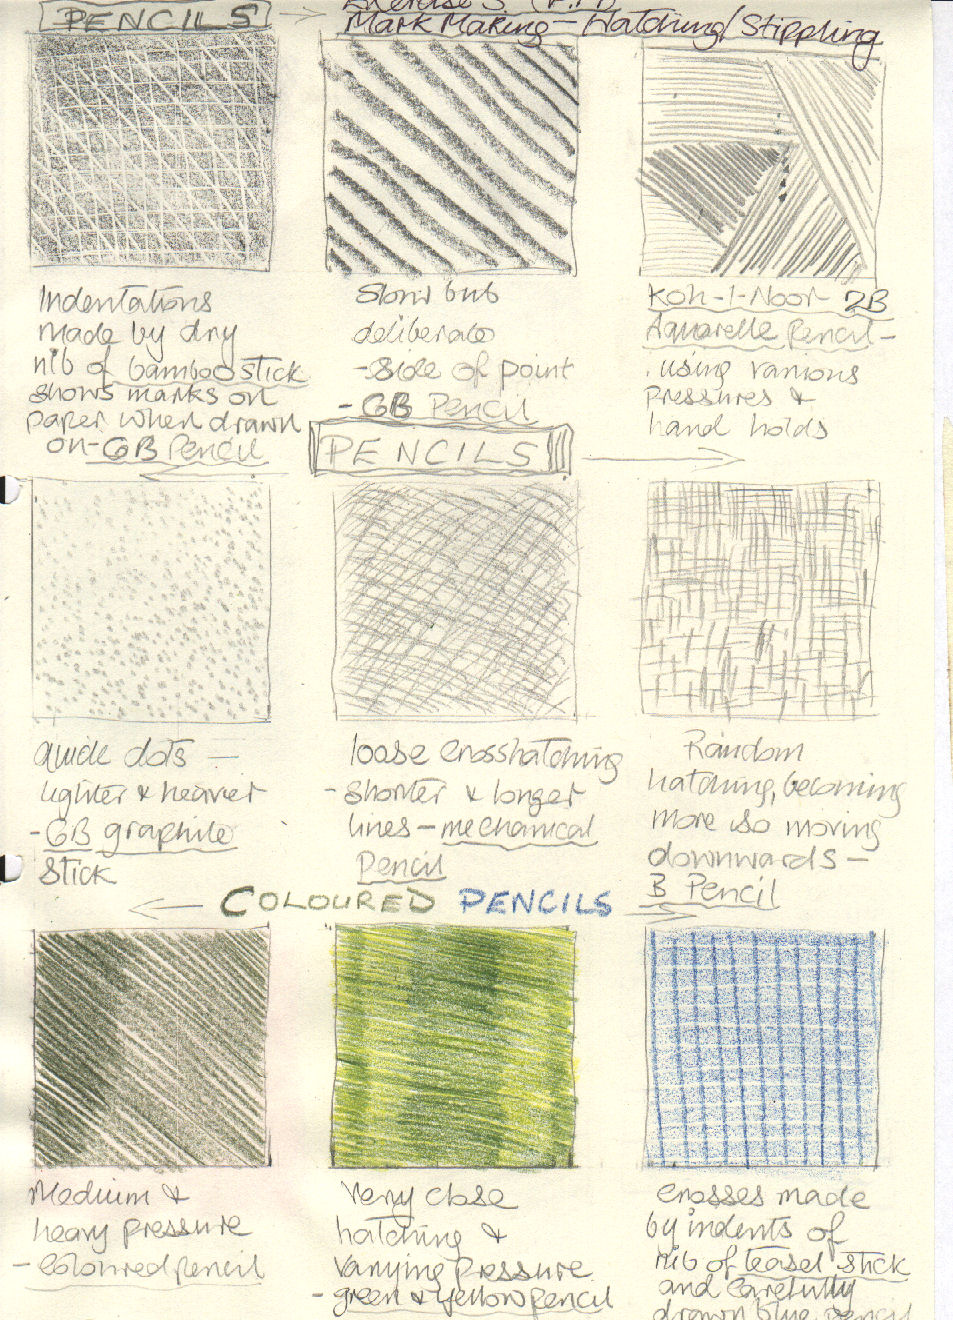 PENCILS
Mark Making - Hatching/Stippling
Indentations
made by dry
nib of bamboo stick
shows marks on
paper when drawn
on - 6B Pencil
Slow but
deliberate
- side of point
- 6B Pencil
Koh-I-Noor 2B
Aquarelle Pencil -
using various
pressures &
hand holds
PENCILS
quick dots -
lighter & heavier
- 6B graphite
stick
loose crosshatching
- shorter & longer
lines - mechanical
Pencil
Random
hatching, becoming
more so moving
downwards -
B Pencil
COLOURED PENCILS
Medium &
heavy pressure
- coloured pencil
Very close
hatching &
varying pressure
- green & yellow pencil
crosses made
by indents of
nib of teasel stick
and carefully
drawn blue pencil